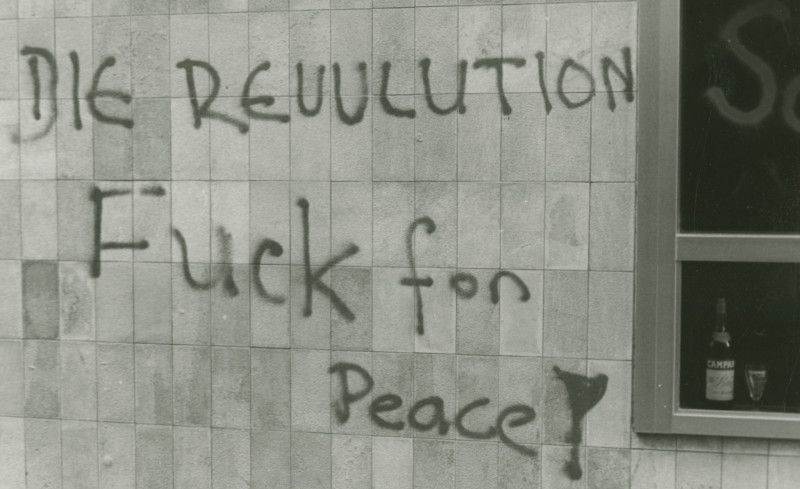 DIE REVULUTION
Fuck for
Peace!
So
CAMPARI